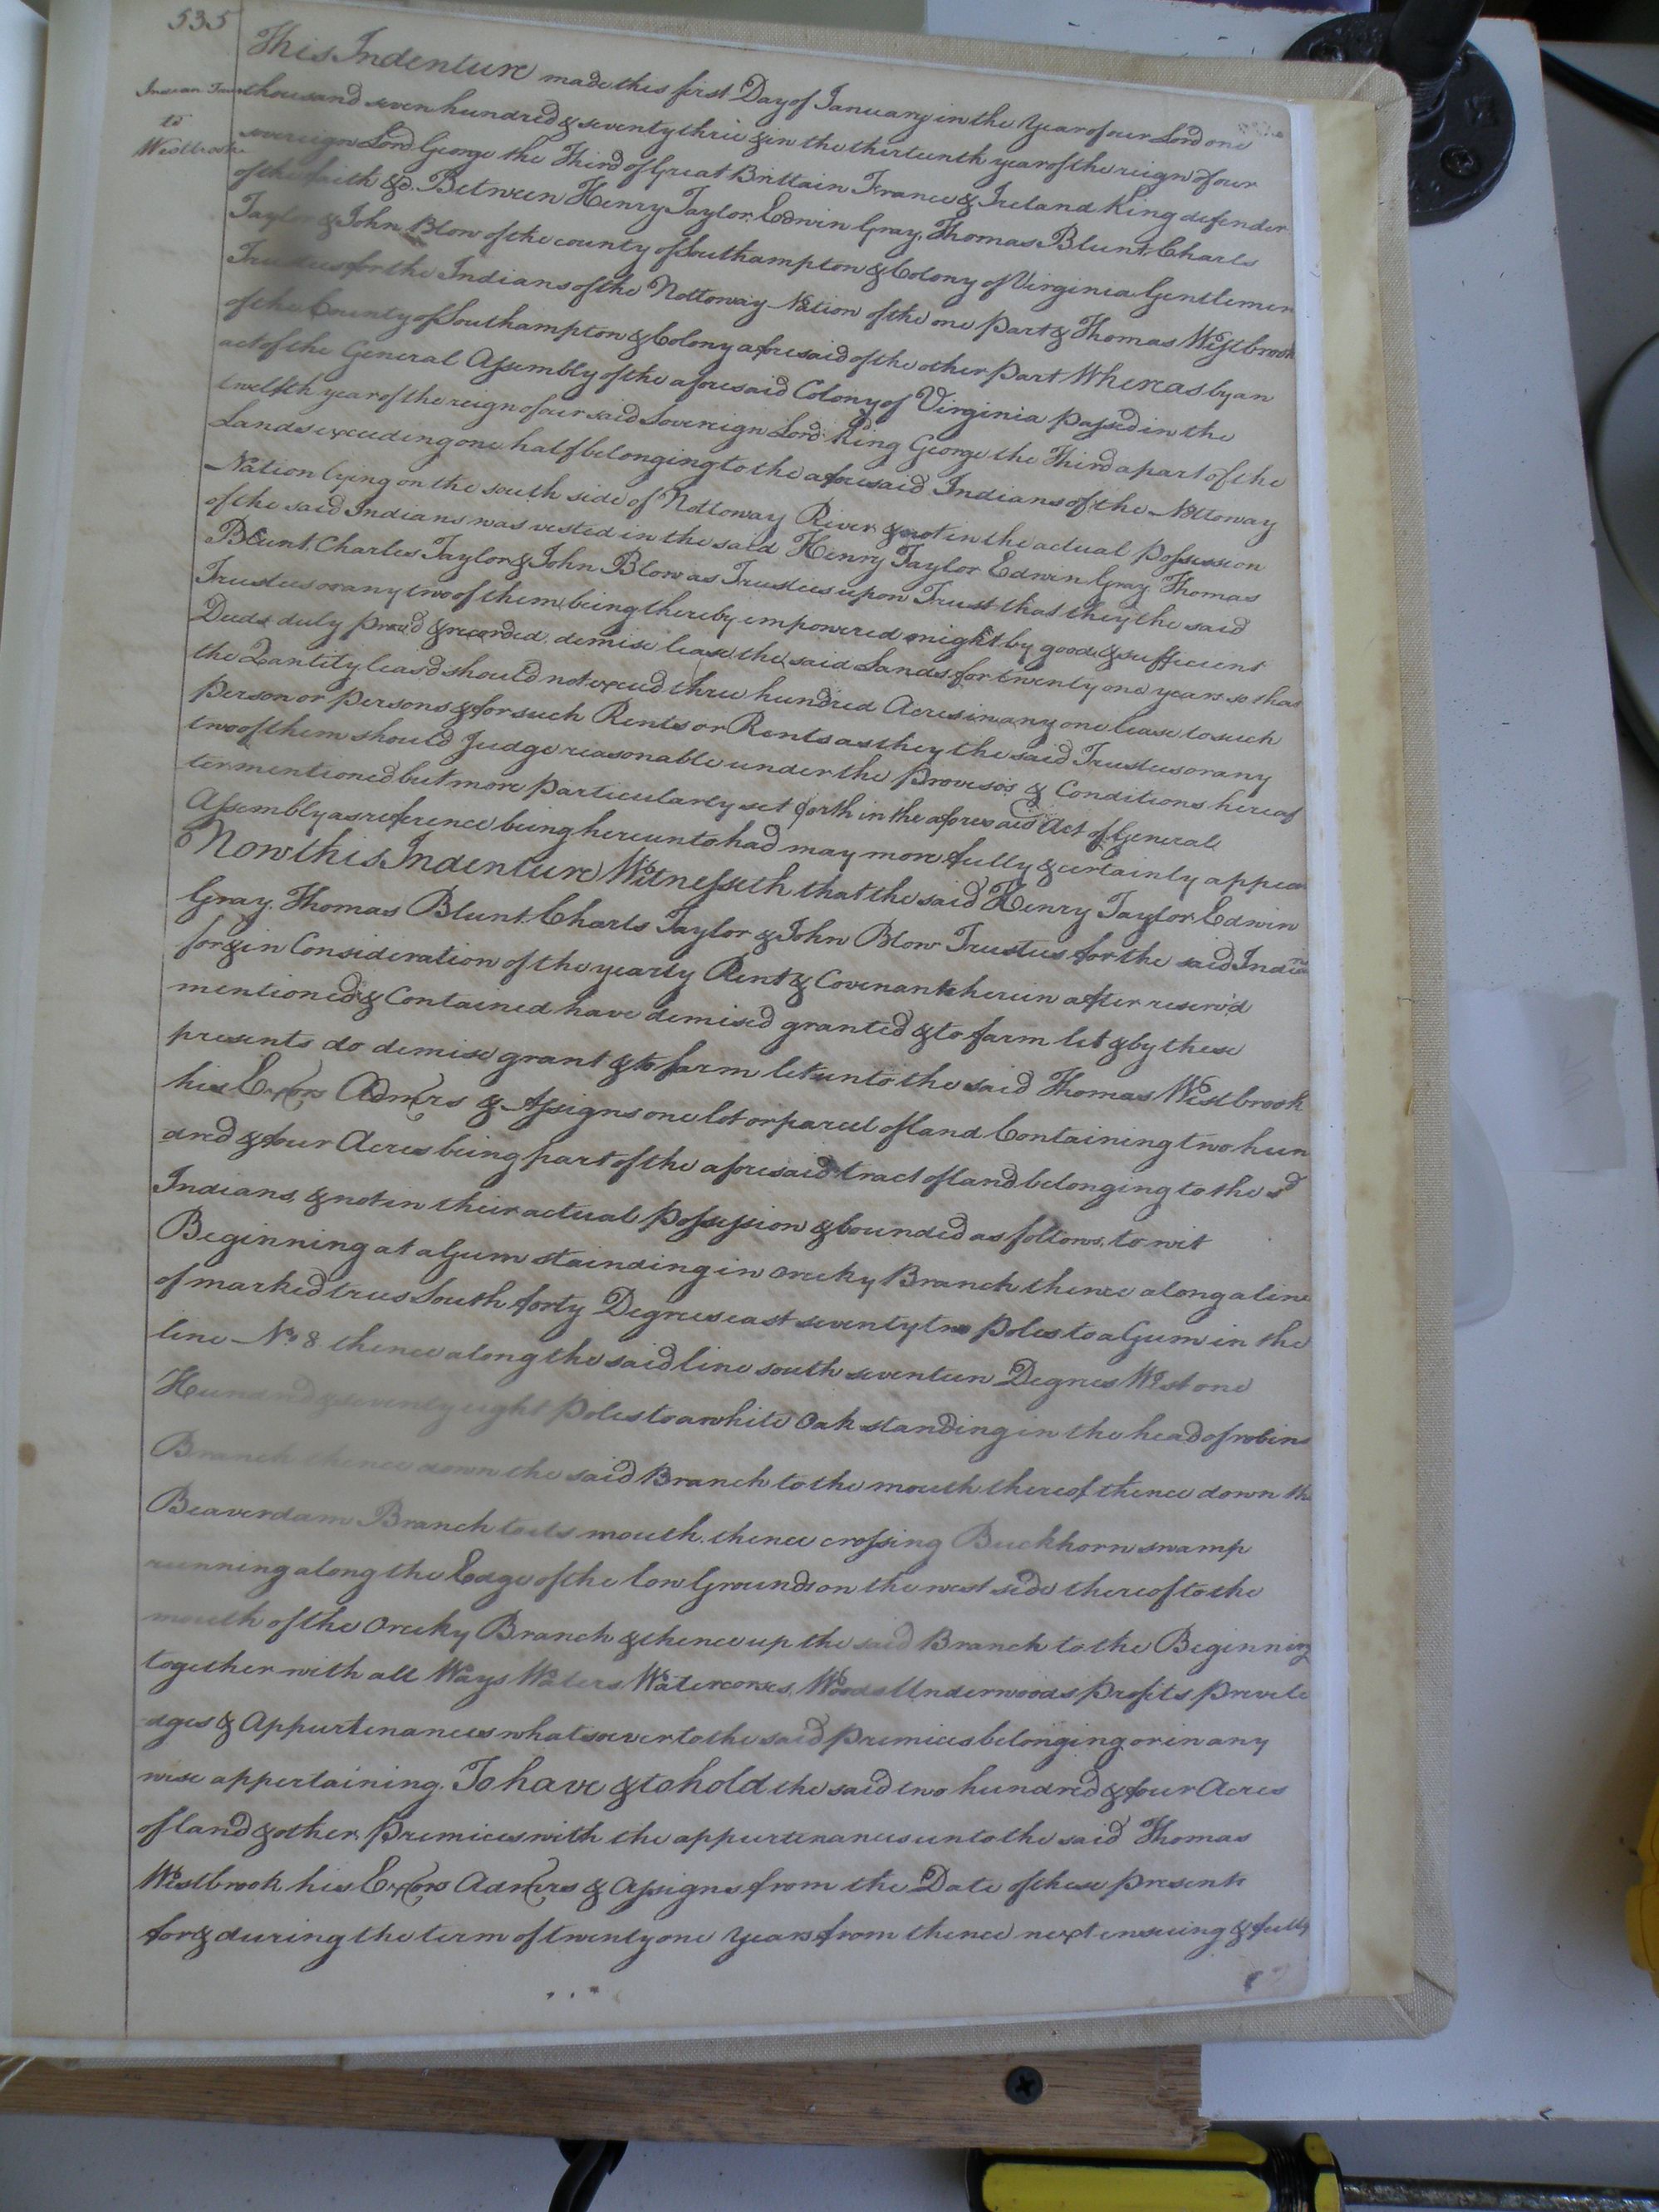 535
Indian
to
Westbrook
This Indenture made this first Day of January in the Year of our Lord one
thousand seven hundred & seventy three & in the therteenth year of the reign of our
sovereign Lord George the Third of Great Brittain France & Ireland King defender
of the faith &c. Between Henry Taylor Edwin Gray, Thomas Blunt, Charls
Taylor & John Blow of the county of Southampton & Colony of Virginia Gentlemen
Trustees for the Indians of the Nottoway Nation of the one part & Thomas Westbrook
of the County of Southampton & Colony aforesaid of the other part Whereas by an
act of the General Assembly of the aforesaid Colony of Virginia passed in the
twelfth year of the reign of our said Sovereign Lord King George the Third a part of the
Lands exceeding one half belonging to the aforesaid Indians of the Nottoway
Nation lying on the south side of Nottoway River & not in the actual possession
of the said Indians was vested in the said Henry Taylor Edwin Gray Thomas
Blunt, Charles Taylor & John Blow as Trustees upon Trust that they the said
Trustees or any two of them being thereby empowered might by good & sufficient
Deeds duly prov'd & recorded demise lease the said Lands for twenty one years so that
the Quantity leas'd should not exceed three hundred Acres in any one lease to such
person or persons & for such Rents or Rents as they the said Trustees or any
two of them should Judge reasonable under the provisos & Conditions hereaf
ter mentioned but more particularly set forth in the aforesaid Act of General
Assembly as reference being hereunto had may more fully & certainly appear
Now this Indenture Witnesseth that the said Henry Taylor Edwin
Gray, Thomas Blunt, Charls Taylor & John Blow Trustees for the said Indians
for & in Consideration of the yearly Rent & Covenants herein after reserv'd
mentioned & Contained have demised granted & to farm let & by these
presents do demise grant & to farm let unto the said Thomas Westbrook
his Exors Admrs & Assigns one lot or parcel of land Containing two hun
dred & four Acres being part of the aforesaid tract of land belonging to the sd
Indians, & not in their actual possession & bounded as follows, to wit
Beginning at a Gum stainding in Creeky Branch thence along a line
of marked trees South forty Degrees east seventy two poles to a Gum in the
line No. 8 thence along the said line south seventeen Degrees West one
Hundred & seventy eight poles to a white Oak standing in the head of robins
Branch thence down the said Branch to the mouth thereof thence down the
Beaverdam Branch to its mouth, thence crossing Buckhorn swamp
running along the Edge of the low Grounds on the west side thereof to the
mouth of the Creeky Branch & thence up the said Branch to the Beginning
together with all Ways Waters Watercorses, Woods Underwoods profits previle
dges & Appurtenances whatsoever to the said premices belonging or in any
wise appertaining. To have & to hold the said two hundred & four Acres
of land & other premices with the appurtenances unto the said Thomas
Westbrook his Exors Admrs & Assigns from the Date of these presents
for & during the term of twenty one Years from thence next ensueing & fully